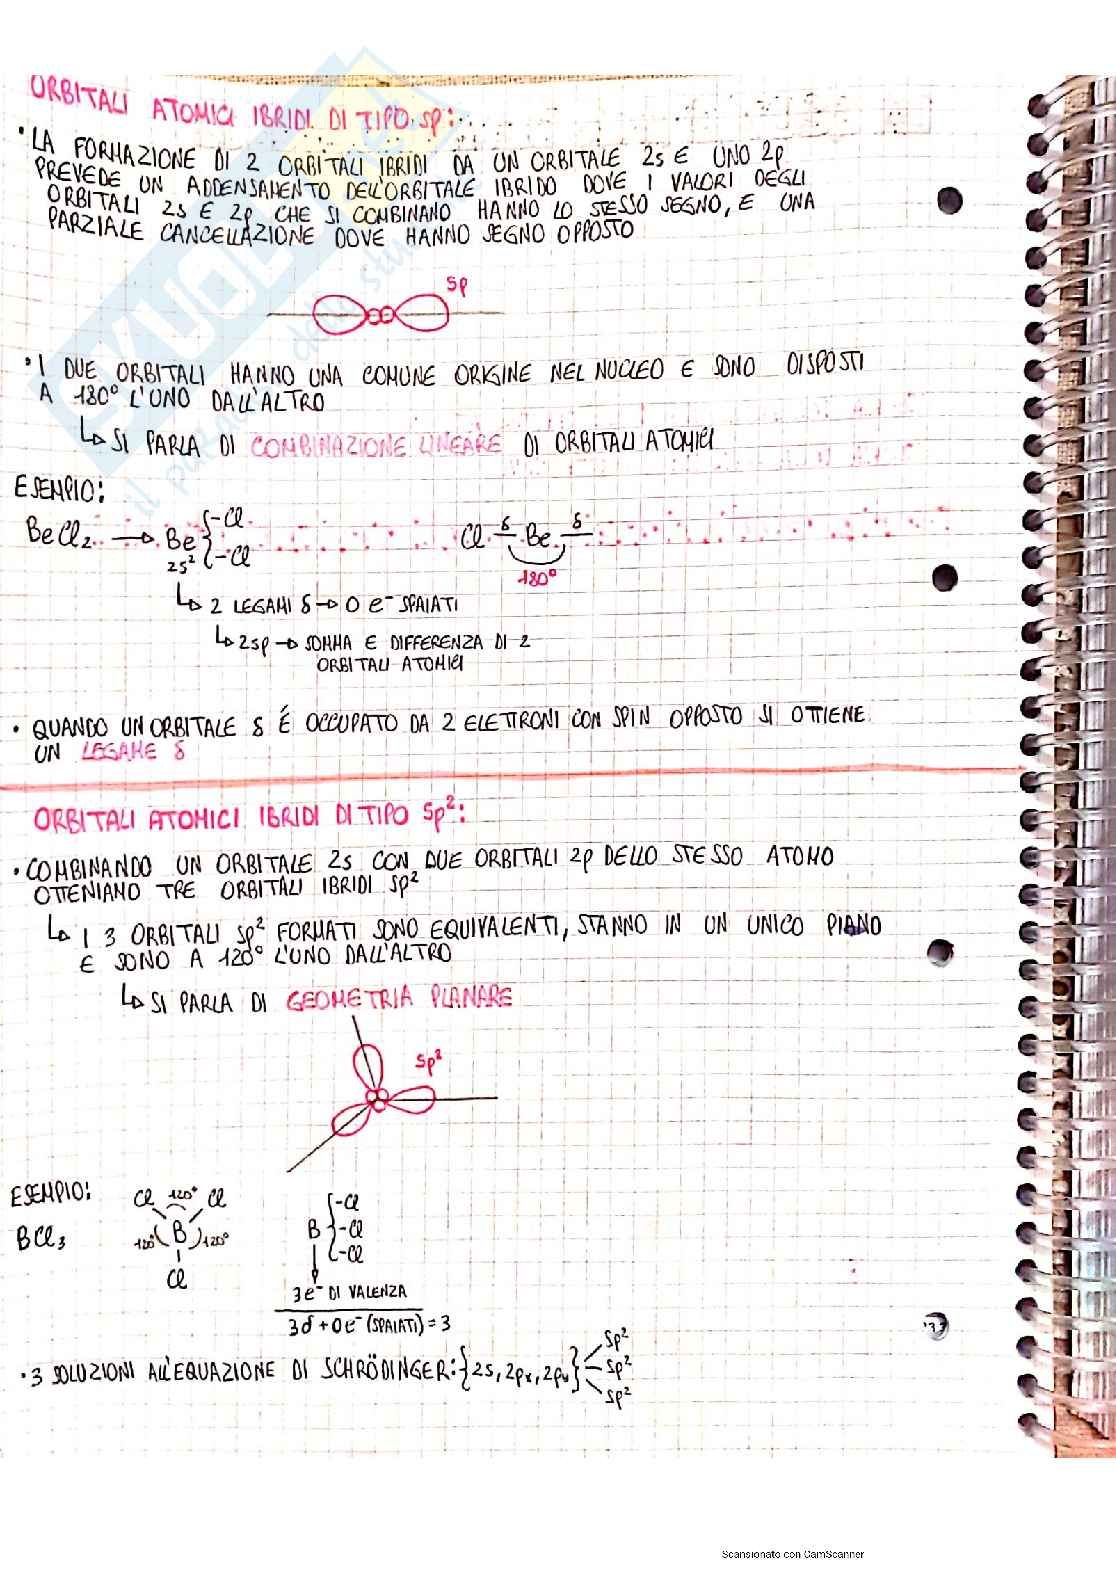 ORBITALI ATOMICI IBRIDI DI TIPO sp:
• LA FORMAZIONE DI 2 ORBITALI IBRIDI DA UN ORBITALE 2s E UNO 2p
PREVEDE UN ADDENSAMENTO DELL'ORBITALE IBRIDO DOVE I VALORI DEGLI
ORBITALI 2s E 2p CHE SI COMBINANO HANNO LO STESSO SEGNO, E UNA
PARZIALE CANCELLAZIONE DOVE HANNO SEGNO OPPOSTO
sp
• I DUE ORBITALI HANNO UNA COMUNE ORIGINE NEL NUCLEO E SONO DISPOSTI
A 180° L'UNO DALL'ALTRO
↳ SI PARLA DI COMBINAZIONE LINEARE DI ORBITALI ATOMICI
ESEMPIO:
BeCl₂ → Be { -Cl -Cl
2s²
Cl δ Be δ
180°
↳ 2 LEGAMI δ → 0 e⁻ SPAIATI
↳ 2sp → SOMMA E DIFFERENZA DI 2
ORBITALI ATOMICI
• QUANDO UN ORBITALE δ É OCCUPATO DA 2 ELETTRONI CON SPIN OPPOSTO SI OTTIENE
UN LEGAME δ
ORBITALI ATOMICI IBRIDI DI TIPO sp²:
• COMBINANDO UN ORBITALE 2s CON DUE ORBITALI 2p DELLO STESSO ATOMO
OTTENIAMO TRE ORBITALI IBRIDI sp²
↳ I 3 ORBITALI sp² FORMATI SONO EQUIVALENTI, STANNO IN UN UNICO PIANO
E SONO A 120° L'UNO DALL'ALTRO
↳ SI PARLA DI GEOMETRIA PLANARE
sp²
ESEMPIO:
BCl₃
Cl 120° Cl
120° B 120°
Cl
B { -Cl -Cl -Cl
3e⁻ DI VALENZA
3δ + 0e⁻ (SPAIATI) = 3
• 3 SOLUZIONI ALL'EQUAZIONE DI SCHRÖDINGER: {2s, 2pₓ, 2pᵧ} sp² sp² sp²
Scansionato con CamScanner